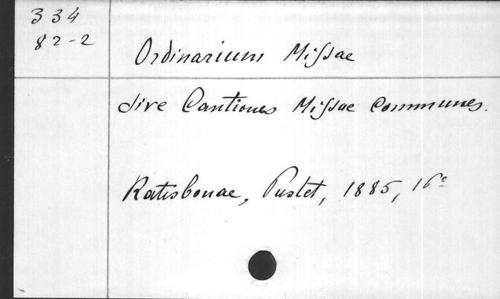 334
82-2
Ordinarium Missae
sive Cantiones Missae Communes.
Ratisbonae, Pustet, 1885, 16º